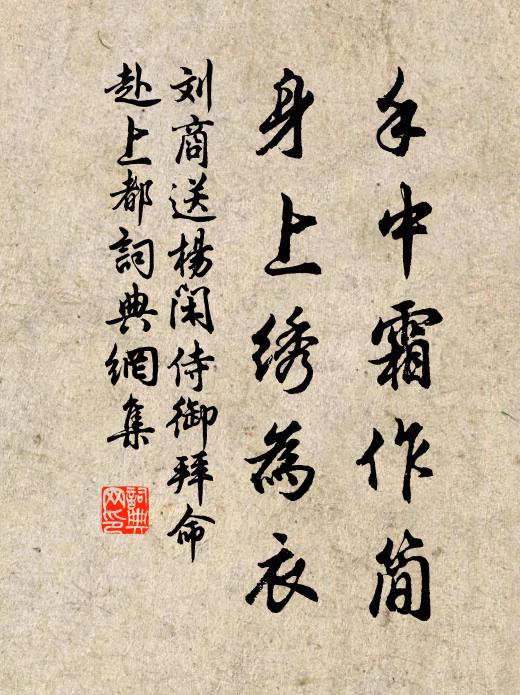 手中霜作简
身上绣為衣
刘商送楊闲侍御拜命
赴上都詞典網集
詞典网印